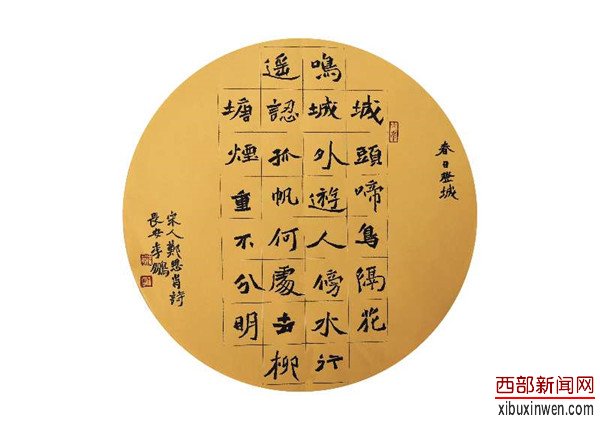 春日登城
城頭啼鳥隔花
鳴城外遊人傍水行
遥認孤帆何處去柳
塘煙重不分明
宋人鄭思肖詩
長安李鵬
西部新闻网
xibuxinwen.com